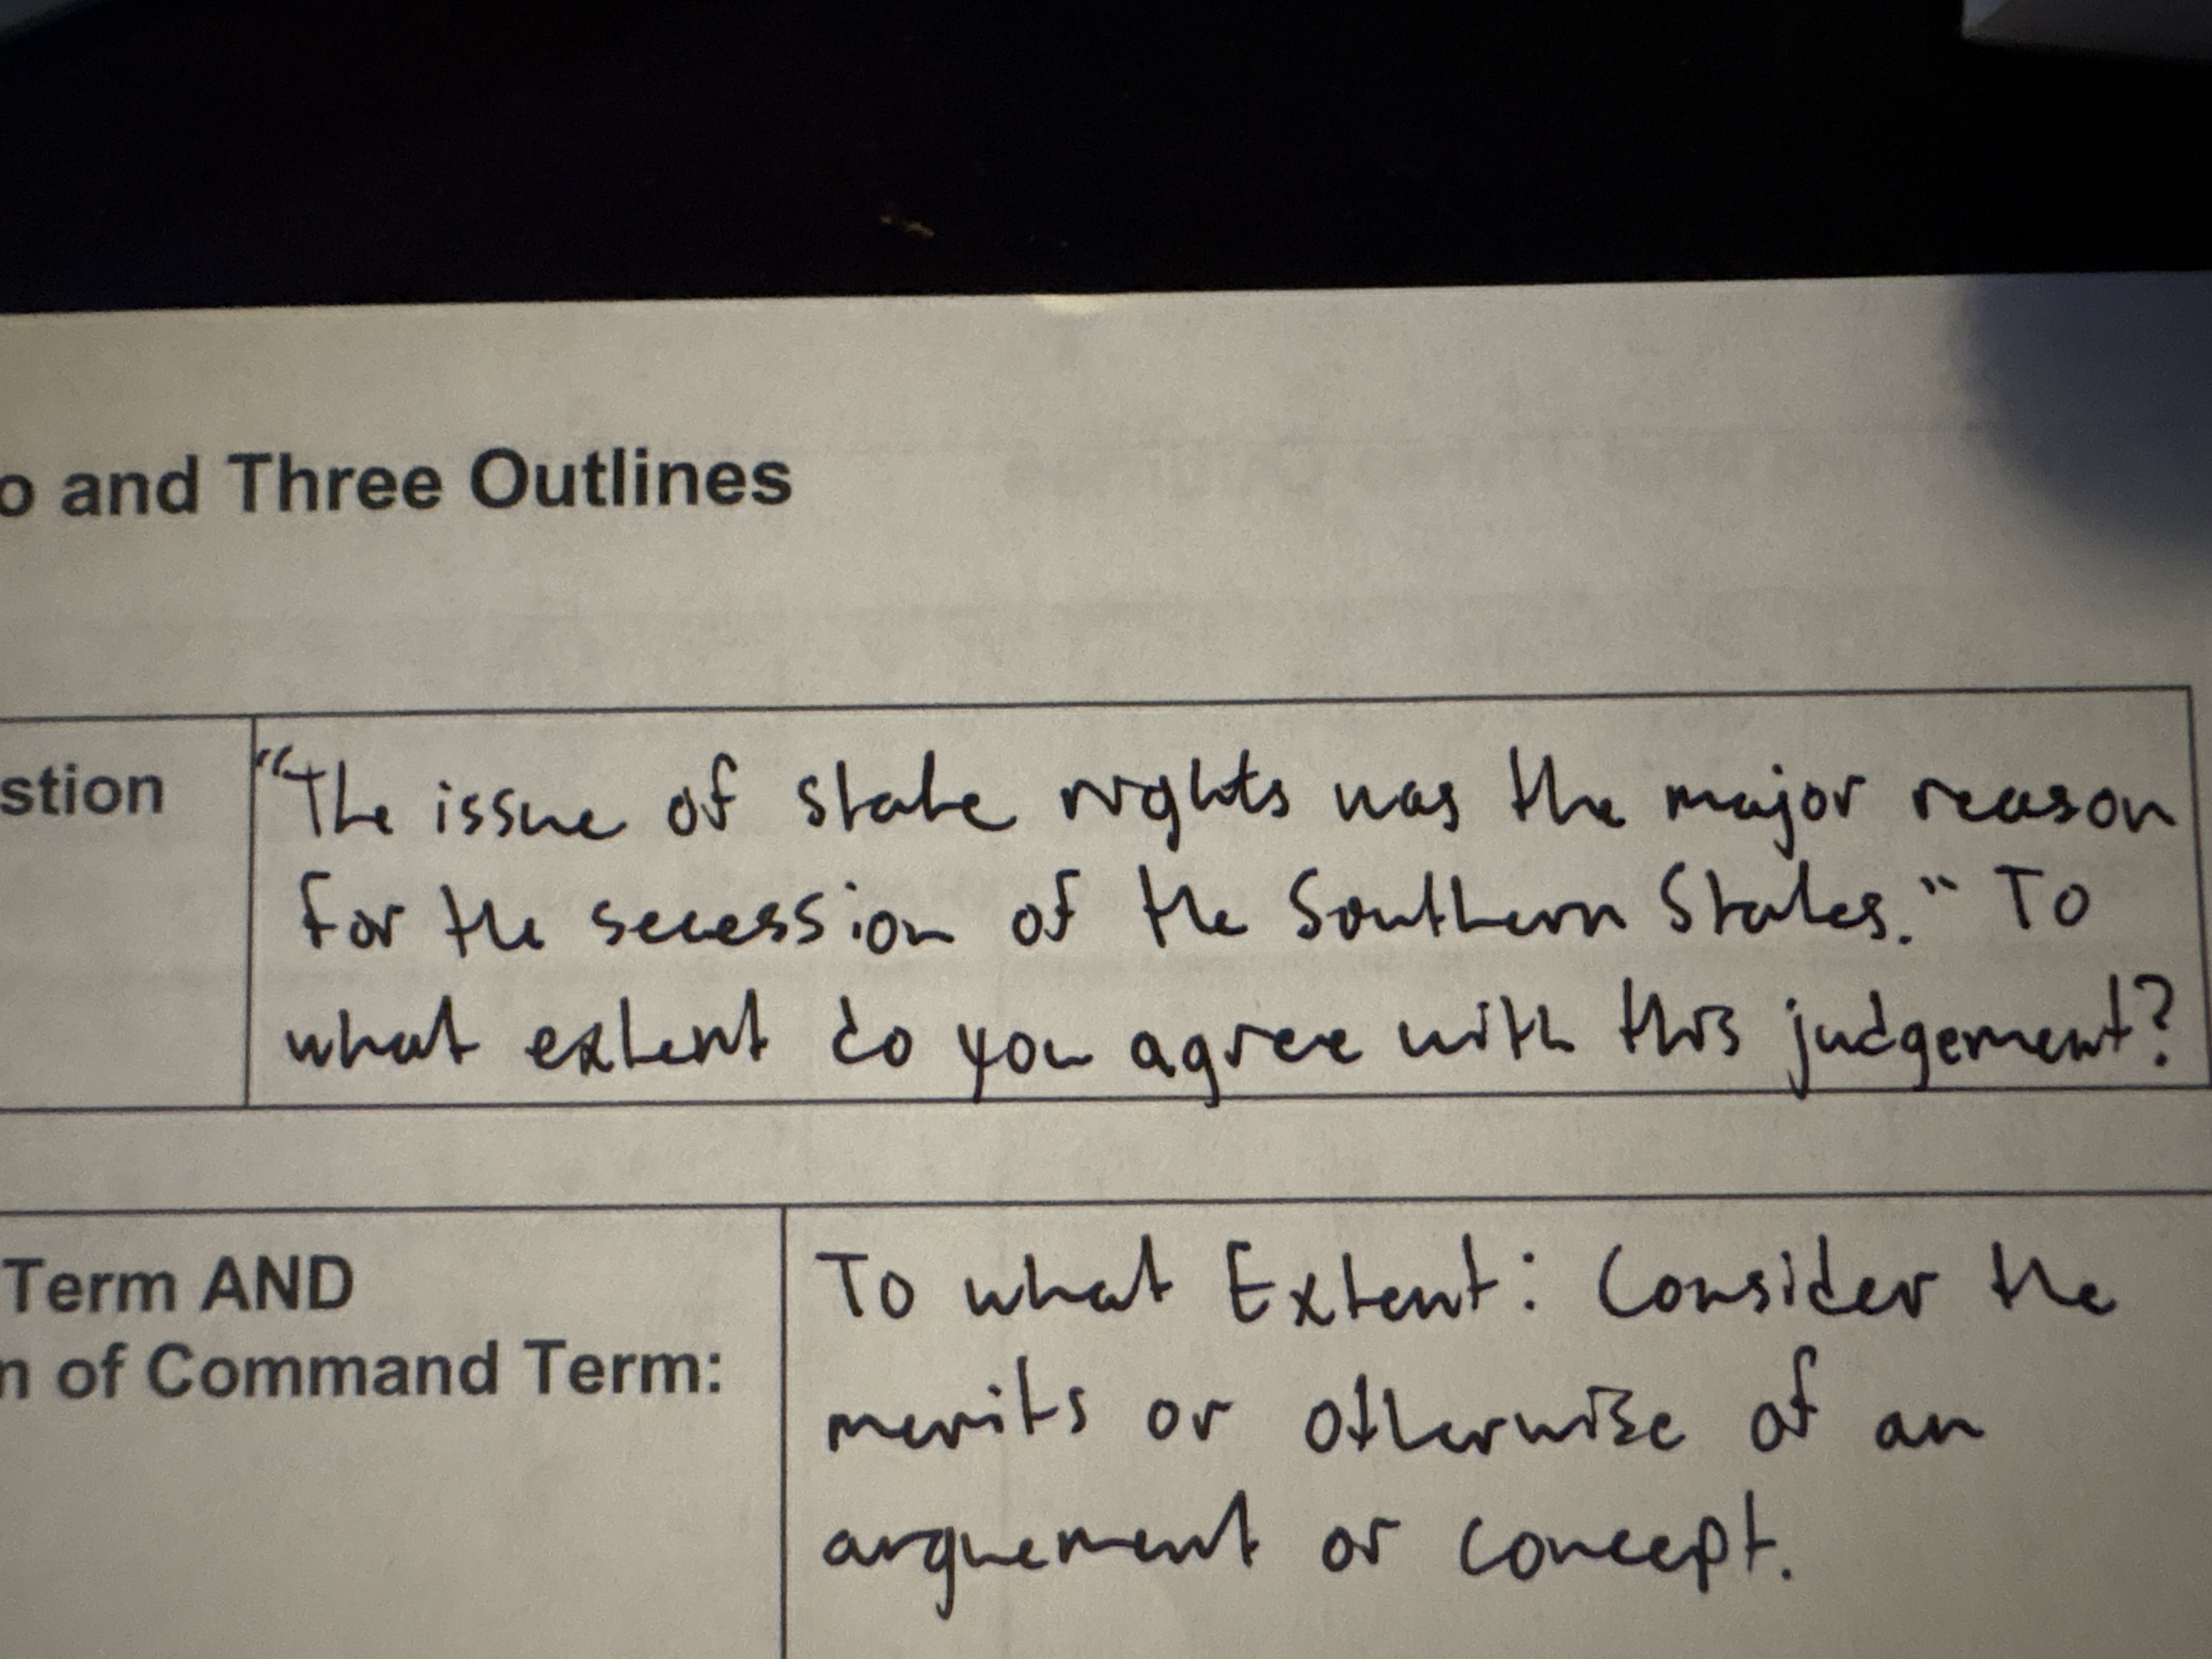 o and Three Outlines
stion
"The issue of state rights was the major reason
for the secession of the Southern States." To
what extent do you agree with this judgement?
Term AND
n of Command Term:
To what Extent: Consider the
merits or otherwise of an
arguement or concept.